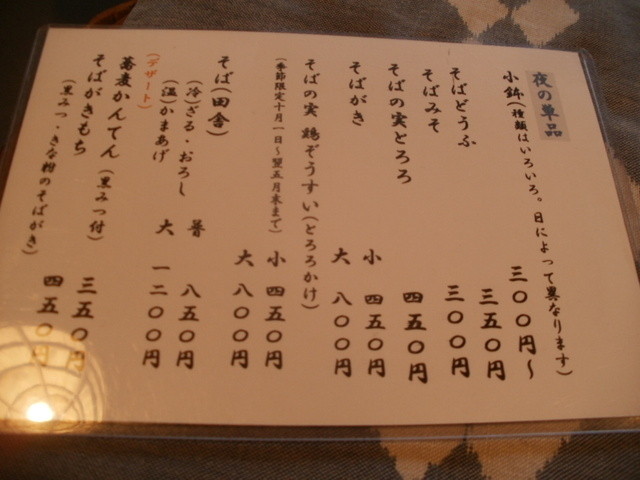 夜の単品
小鉢(種類はいろいろ。日によって異なります)
三〇〇円〜
そばどうふ 三五〇円
そばみそ 三〇〇円
そばの実とろろ 四五〇円
そばがき 小 四五〇円
大 八〇〇円
そばの実 鶏ぞうすい(とろろかけ)
(季節限定十月一日〜翌五月末まで) 小 四五〇円
大 八〇〇円
そば(田舎)
(冷)ざる・おろし 普 八五〇円
(温)かまあげ 大 一二〇〇円
(デザート)
蕎麦かんてん(黒みつ付) 三五〇円
そばがきもち
(黒みつ・きな粉のそばがき) 四五〇円